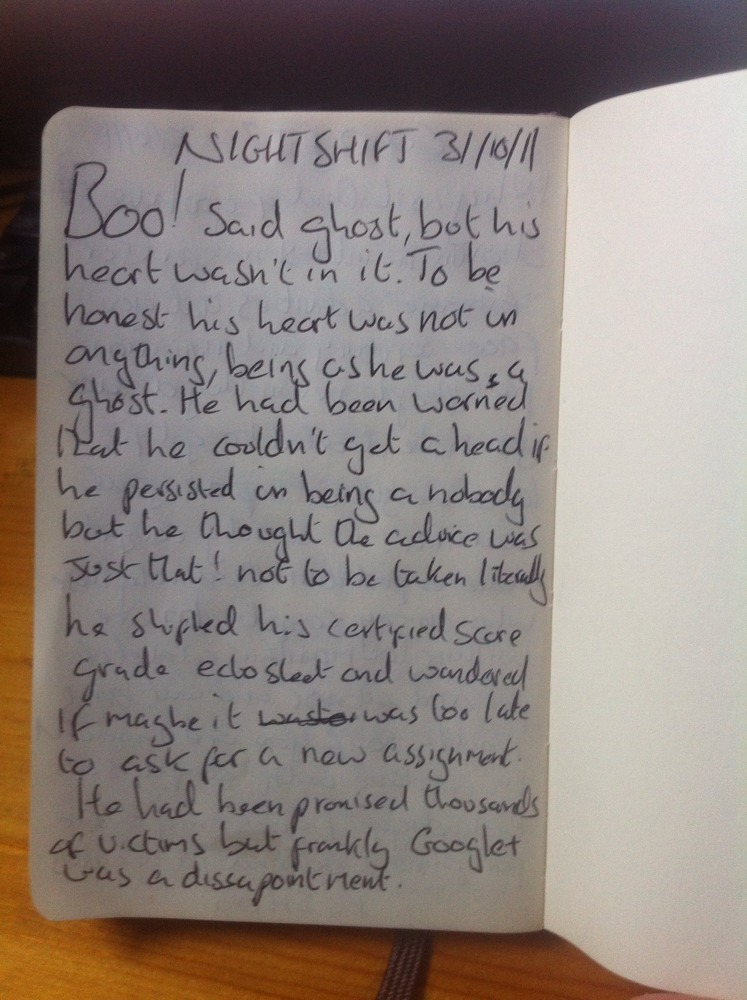 NIGHTSHIFT 31/10/11
Boo! Said ghost, but his
heart wasn't in it. To be
honest his heart was not in
anything, being as he was, a
ghost. He had been warned
that he couldn't get a head if
he persisted in being a nobody
but he thought the advice was
Just that! not to be taken literally
he shifted his certified scare
grade ectosheet and wondered
if maybe it was too late
to ask for a new assignment.
He had been promised thousands
of victims but frankly Google+
was a dissapointment.